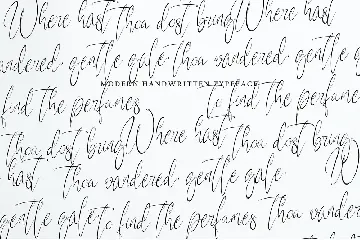 Where hast thou dost bring Where hast
wandered gentle gale thou wandered gentle g
MODERN HANDWRITTEN TYPEFACE
find the perfumes to find the perfume
thou dost bring Where hast thou dost bring
hast thou wandered gentle gale
gentle gale to find the perfumes thou wander